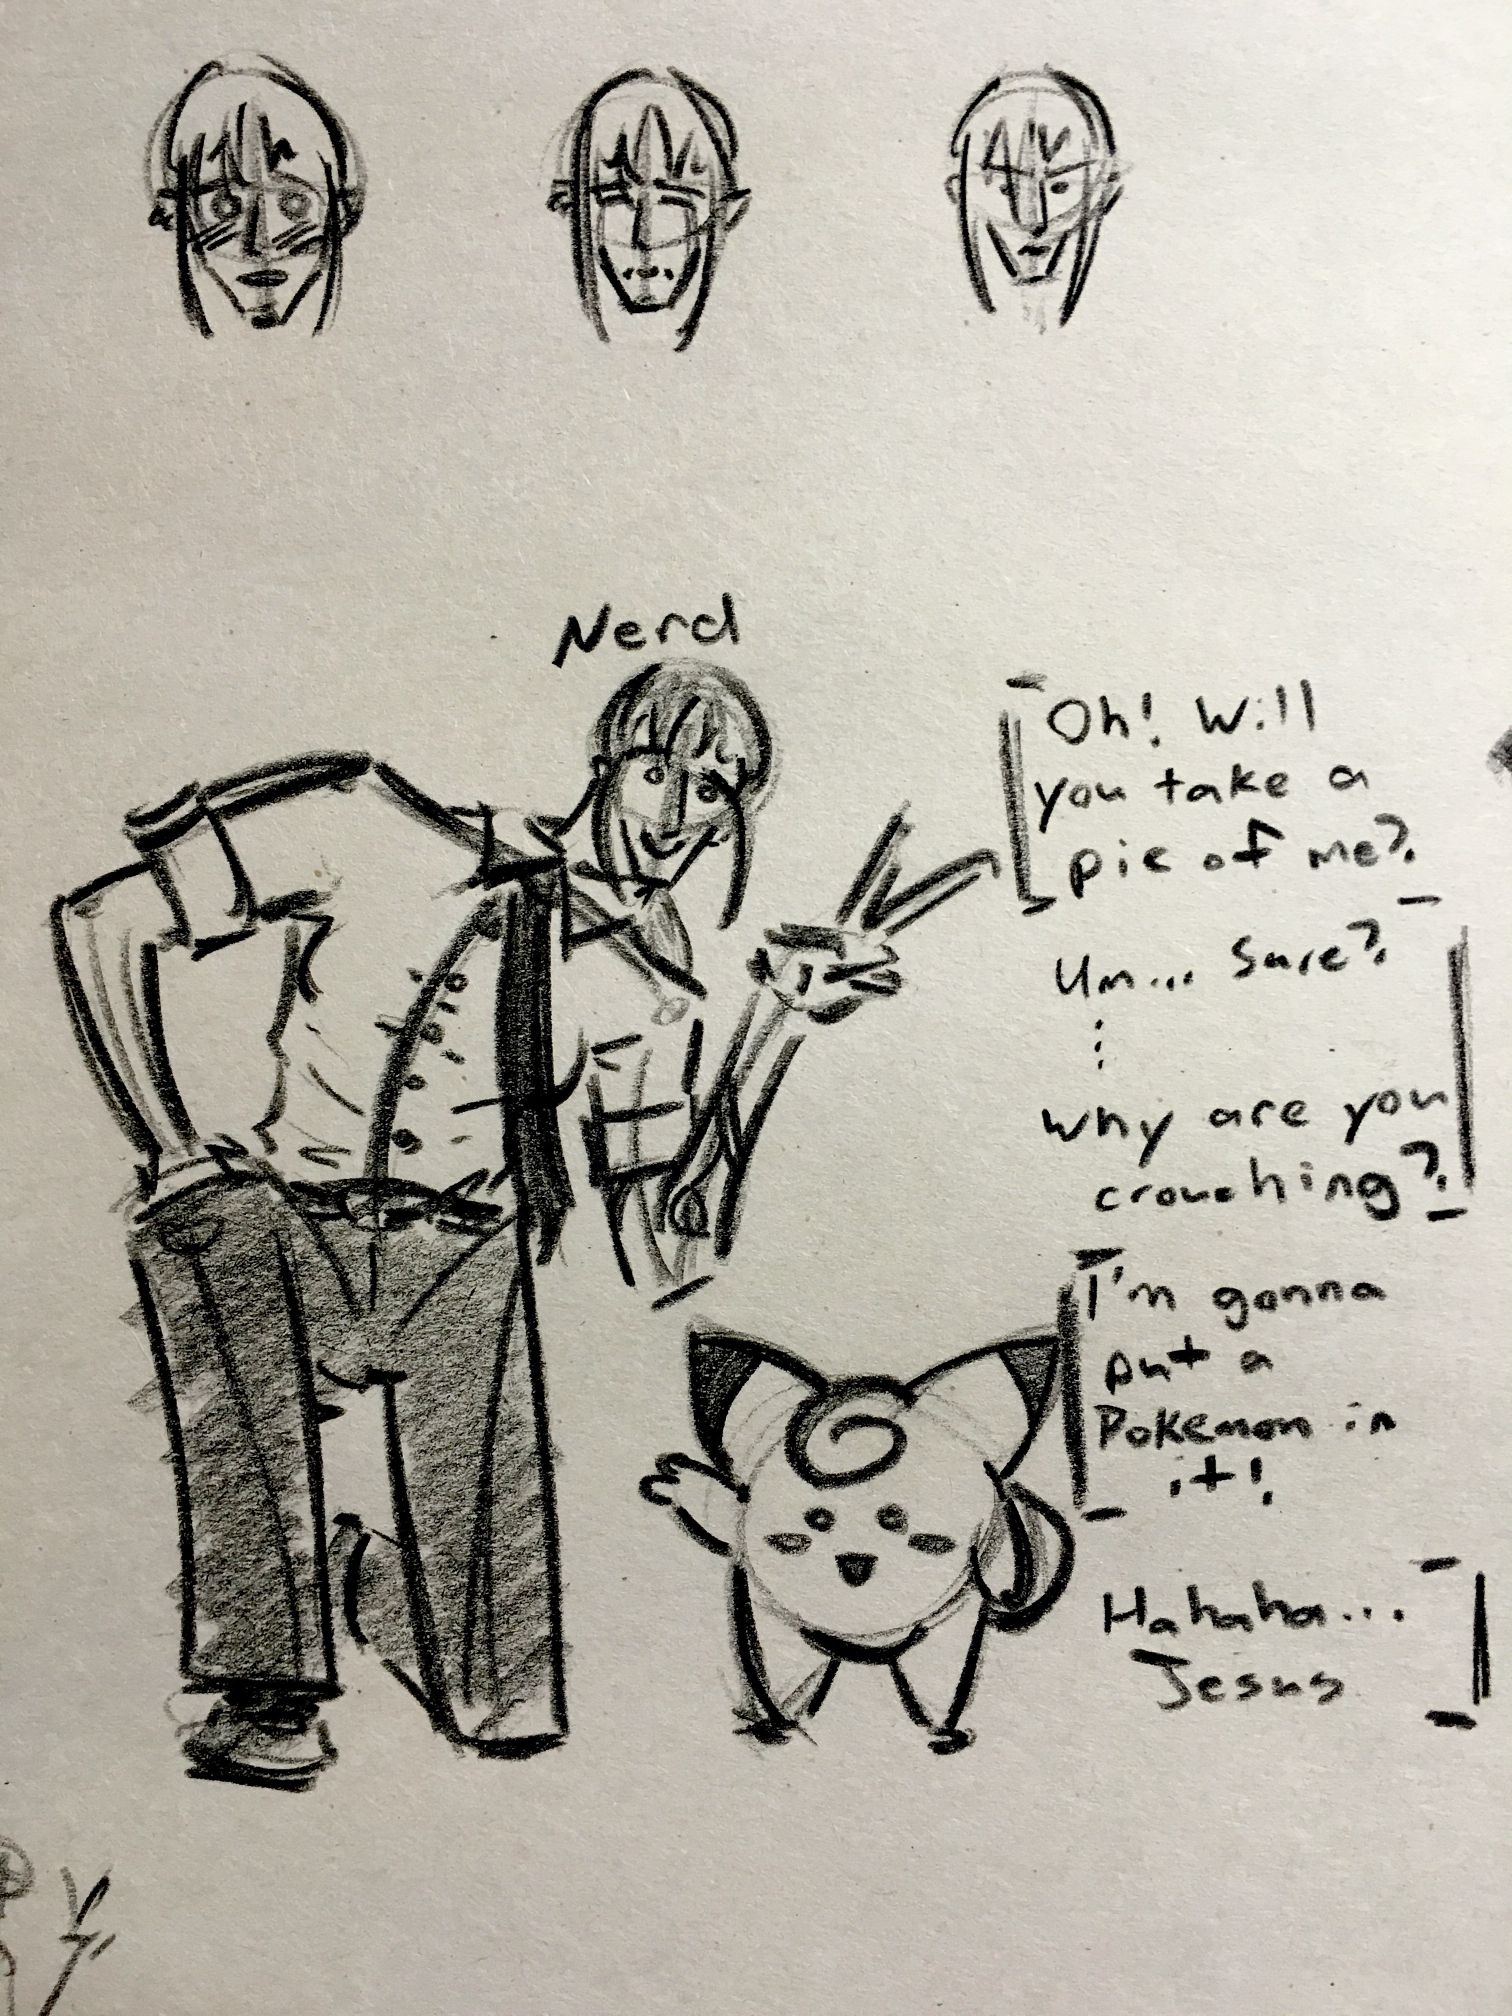 Nerd
Oh! Will
you take a
pic of me?
Um... Sure?
Why are you
crouching?
I'm gonna
put a
Pokemon in
it!
Hahaha...
Jesus